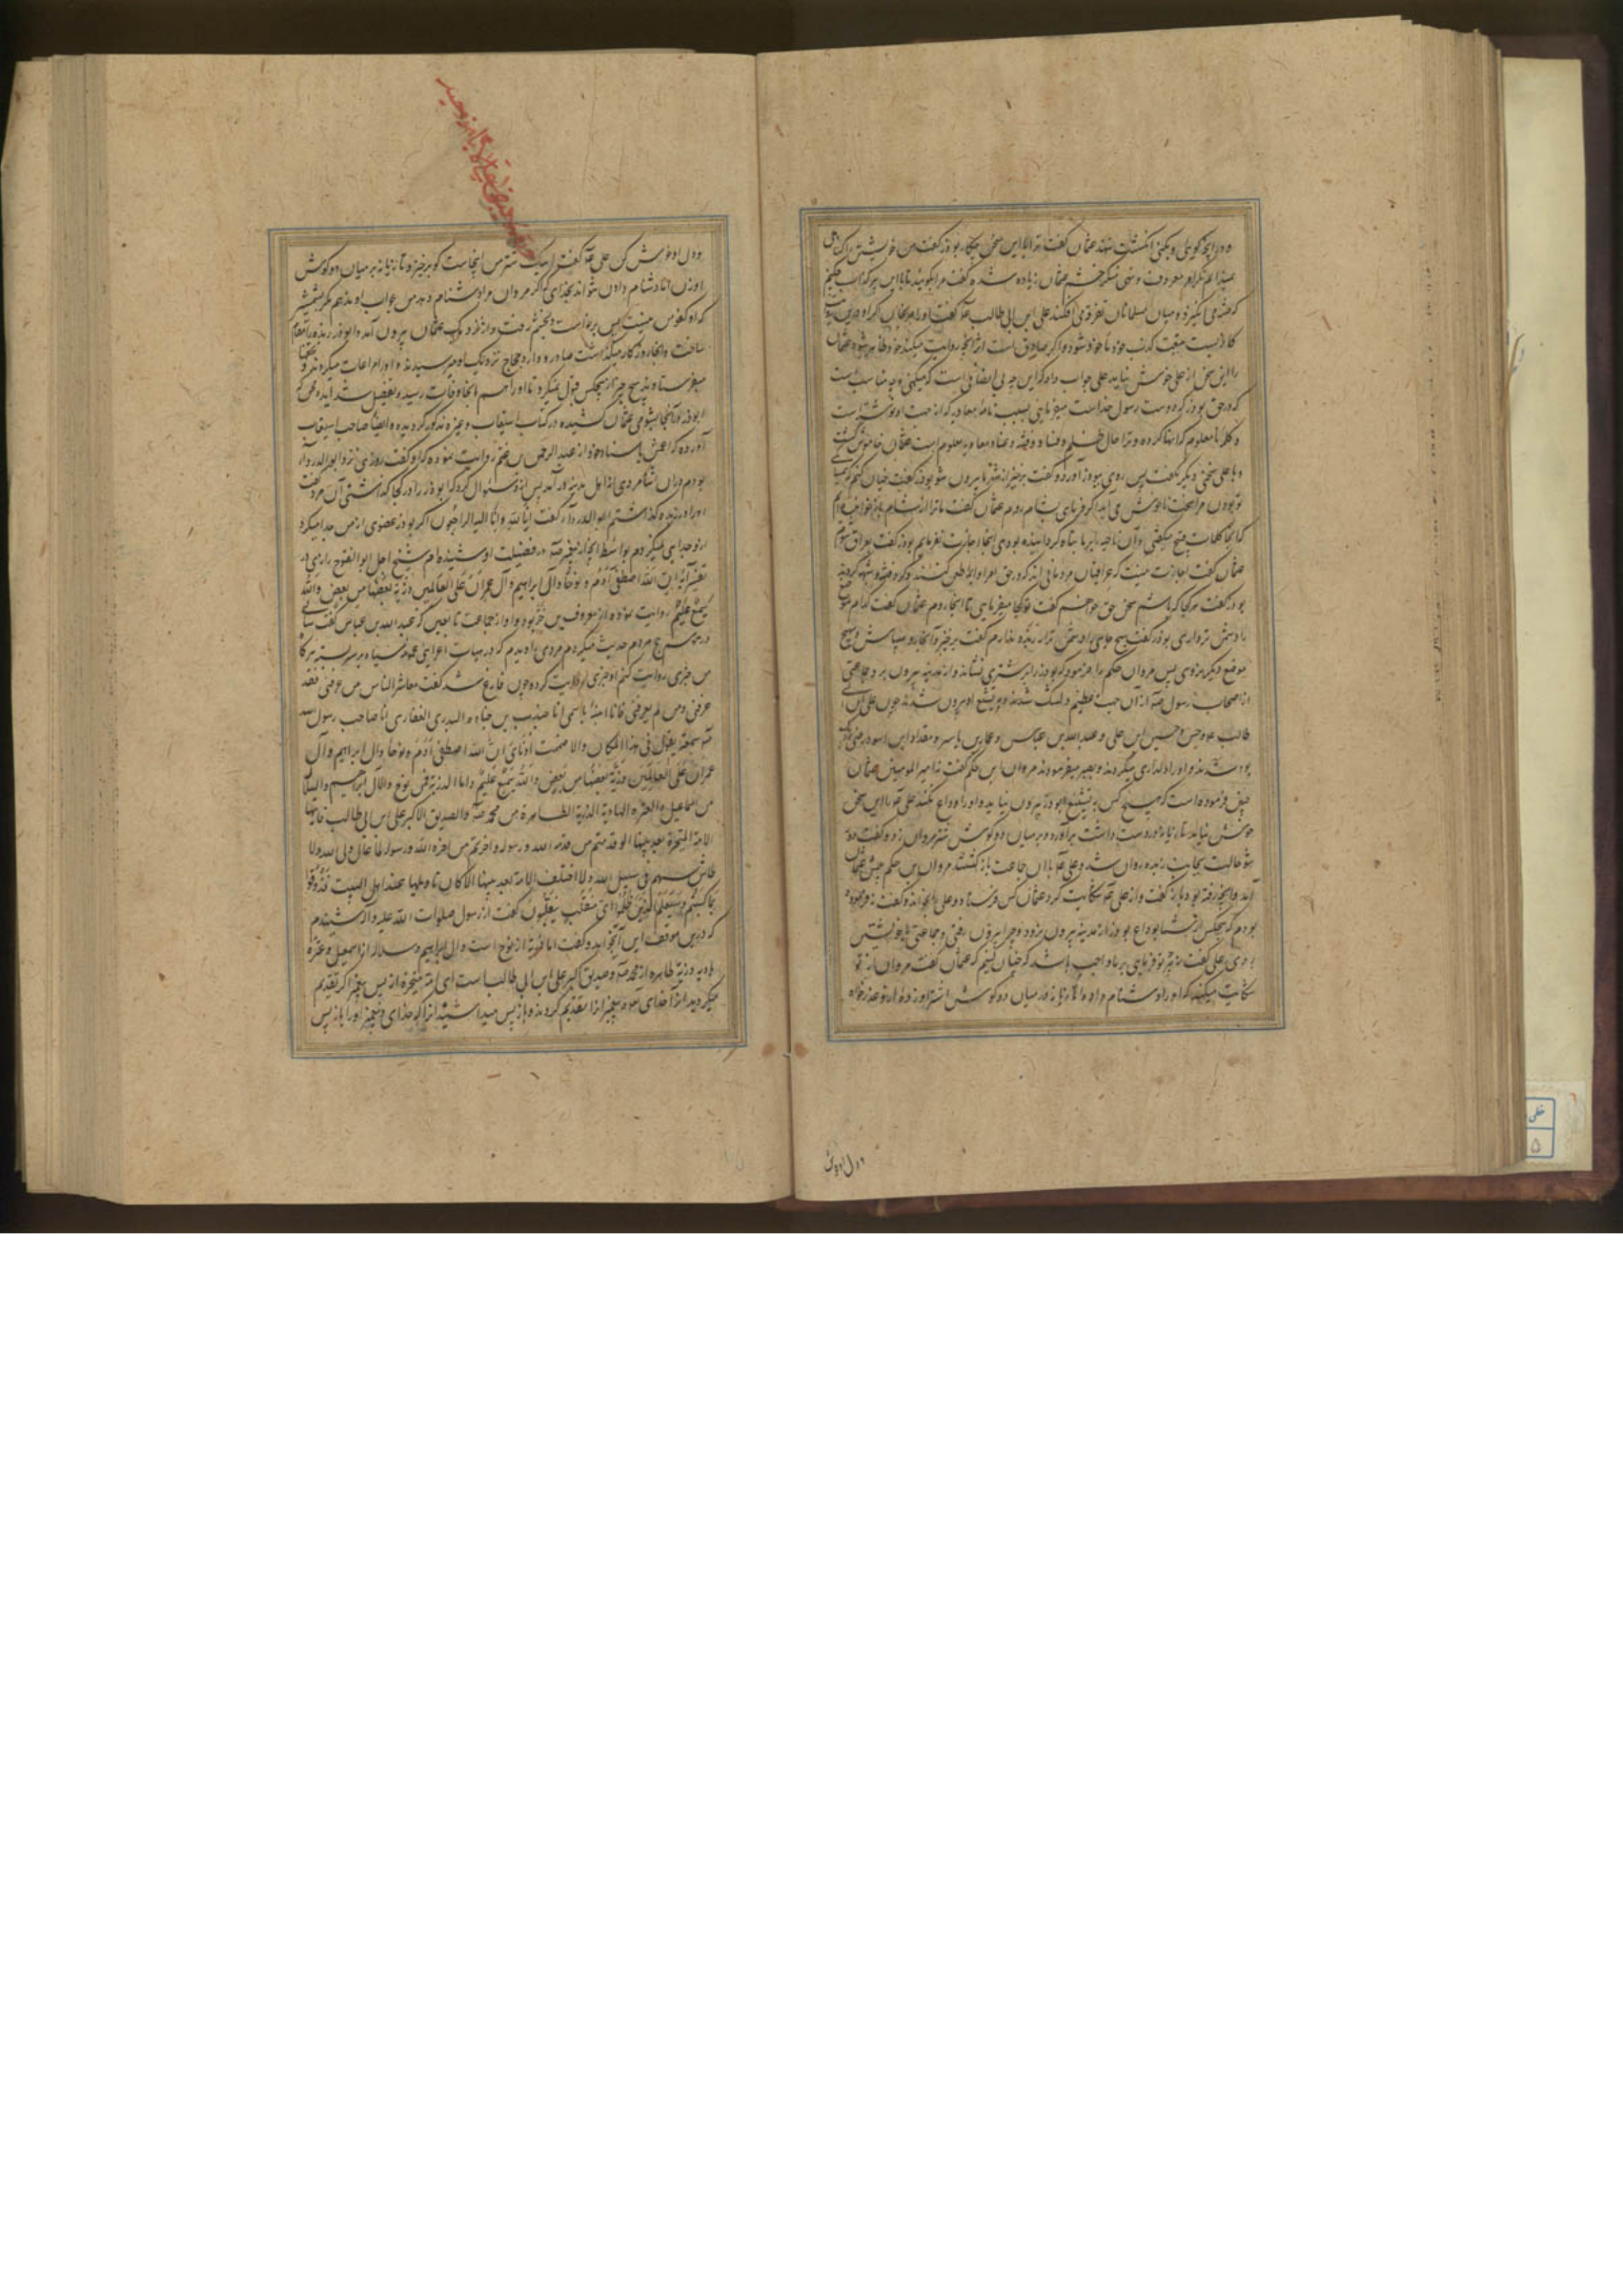 و در آنچه گویی و بکنی انگشت نهند عثمان گفت ترا با این سخن چکار بوذر گفت من خویشتن را گناهی
نمیدانم مگر امر معروف و نهی منکر خشم عثمان زیاده شده گفت مرا بگویید تا با این پیر کذاب چکنم
که فتنه می انگیزد و میان مسلمانان تفرقه می افکند علی ابن ابی طالب گفت او را مرنجان که او درین
کاذب نیست کذب خود با خود شود و اگر صادق است از آنچه روایت میکند خود ظاهر شود عثمان
را این سخن از علی خوش نیاید علی جواب داد که این چه بی انصافی است که میکنی و چه مناسبت است
که در حق بوذر که دوست رسول خداست میفرمایی بسبب نامهٔ معاویه که از جهت او نوشته است
و کلمهٔ نامعلوم که انها کرده و ترا حال ظلم و فساد و فتنه و عناد معاویه معلوم است عثمان خاموش گشت
و با علی سخنی دیگر نگفت پس روی ببوذر آورد و گفت برخیز از شهر ما بیرون شو بوذر گفت چنان کنم که
تو بودن مرا سخت ناخوش می آید اگر فرمای بشام روم عثمان گفت ما ترا از شام باز خواندیم
که آنجا کلمات قبیح میگفتی و آن ناحیه را بر ما تباه گردانیده بودی آنجا اجازت نفرمایم بوذر گفت بعراق شوم
عثمان گفت اجازت نیست که عراقیان مردمانی اند که در حق امرا و ولاة طعن کنند و گرد فتنه و شبهه گردند
بوذر گفت هر کجا که باشم سخن حق خواهم گفت تو کجا میفرمایی تا آنجا روم عثمان گفت کدام موضع
را دشمن تر داری بوذر گفت هیچ جای را دشمن تر از ربذه ندارم گفت برخیز و آنجا رو و میباش و هیچ
موضع دیگر مرو پس مروان حکم را فرمود که بوذر را بر شتری نشاند و از مدینه بیرون برد جماعتی
از اصحاب رسول از آن جهت عظیم دلتنگ شدند و بتشییع او بیرون شدند چون علی بن ابی
طالب و حسن و حسین ابن علی و عبدالله بن عباس و عمار بن یاسر و مقداد ابن اسود
بوذر شدند و او را دلداری میکردند و بصبر میفرمودند مروان ابن حکم گفت نه امیر المومنین عثمان
چنین فرموده است که هیچ کس بتشییع ابوذر بیرون نیاید و او را وداع نکند علی را این سخن
خوش نیامد تازیانه در دست داشت برآورد و بر میان دو گوش شتر مروان زد و گفت دور
شو حالت بجانب ربذه روان شد و علی با آن جماعت باز گشتند مروان بن حکم پیش عثمان
آمد و آنچه رفته بود باز گفت و از علی شکایت کرد عثمان کس فرستاد و علی را بخواند و گفت نه فرموده
بودم که هیچکس از شما بوداع بوذر از مدینه بیرون نرود چرا بیرون رفتی و جماعتی را با خویشتن
بردی علی گفت هر چه تو فرمایی بر ما واجب باشد که چنان کنیم که عثمان گفت مروان از تو
شکایت میکند که او را دشنام داده و تازیانه در میان دو گوش اشتر او زده از تو عذر خواه
و دل او خوش
و دل او خوش کن علی گفت اینک شتر من اینجاست گو برخیز و تازیانه بر میان دو گوش
او زن اما دشنام دادن نتواند بخدای که اگر مروان مرا دشنام دهد من جواب او ندهم مگر بشمشیر
که او کفو من نیست پس برخاست و بخشم رفت و از نزدیک عثمان بیرون آمد و ابوذر ربذه را مقام
ساخت و آنجا روزگار میگذاشت صادر و وارد و حجاج نزدیک او میرسیدند و او را مراعات میکردند و
میفرستادند هیچ چیز از هیچکس قبول نمیکرد تا او را هم آنجا وفات رسید و تفصیل شداید و محن که
ابوذر از آنجا بشومی عثمان کشیده در کتاب استیعاب و غیره مذکور گردیده و ایضا صاحب استیعاب
آورده که اعمش باسناد خود از عبدالرحمن بن غنم روایت نموده که او گفت روزی نزد ابوالدرداء
بودم در آن اثنا مردی از اهل مدینه در آمد پس از او سئوال کرد که ابوذر را در کجا گذاشتی آن مرد گفت
او را در ربذه گذاشتم ابوالدرداء گفت انا لله و انا الیه راجعون اگر بوذر عضوی از من جدا میکرد
از او جدایی نمیکردم بواسطهٔ آنچه از پیغمبر در فضیلت او شنیده ام شیخ اجل ابوالفتوح رازی در
تفسیر آیه ان الله اصطفی آدم و نوحا و آل ابراهیم و آل عمران علی العالمین ذریة بعضها من بعض والله
سمیع علیم روایت نموده از معروف بن خربوذ و او از جماعت تابعین که عبدالله بن عباس گفت
در موسم حج مردم حدیث میکردم مردی را دیدم که در هیات اعرابی عمامه سیاه بر سر بسته هر گاه
من خبری روایت کنم او خبری روایت کرده چون فارغ شد گفت معاشر الناس من عرفنی فقد
عرفنی و من لم یعرفنی فانا انبئه باسمی انا جندب بن جنادة البدری الغفاری انا صاحب رسول الله
سمعته یقول فی هذا المکان والا صمت اذنای ان الله اصطفی آدم و نوحا و آل ابراهیم و آل
عمران علی العالمین ذریة بعضها من بعض والله سمیع علیم و اما الذریة فمن نوح والآل ابراهیم والسلالة
من اسماعیل والعترة الهادیة الذریة الطاهرة من محمد والصدیق الاکبر علی بن ابی طالب فایتها
الامة المتحیرة بعد نبیها لو قدمتم من قدمه الله و رسوله و اخرتم من اخره الله و رسوله لما عال ولی الله ولا
طاش سهم فی سبیل الله ولا اختلف الامة بعد نبیها الا کان تاویلها عند اهل البیت فذوقوا
بما کسبتم و سیعلم الذین ظلموا ای منقلب ینقلبون گفت از رسول صلوات الله علیه و آله شنیدم
که درین موقف این آیه بخواند و گفت اما ذریة از نوح است و آل ابراهیم و سلاله از اسمعیل و عترة
هادیه و ذریة طاهره از محمد و صدیق اکبر علی ابن ابی طالب است ای امة متحیره از پس پیغمبر اگر تقدیم
میکردید آنرا که خدای و پیغمبر آنرا تقدیم کردند و باز پس میداشتید آنرا که خدای و پیغمبر او را باز پس
خطی
۵